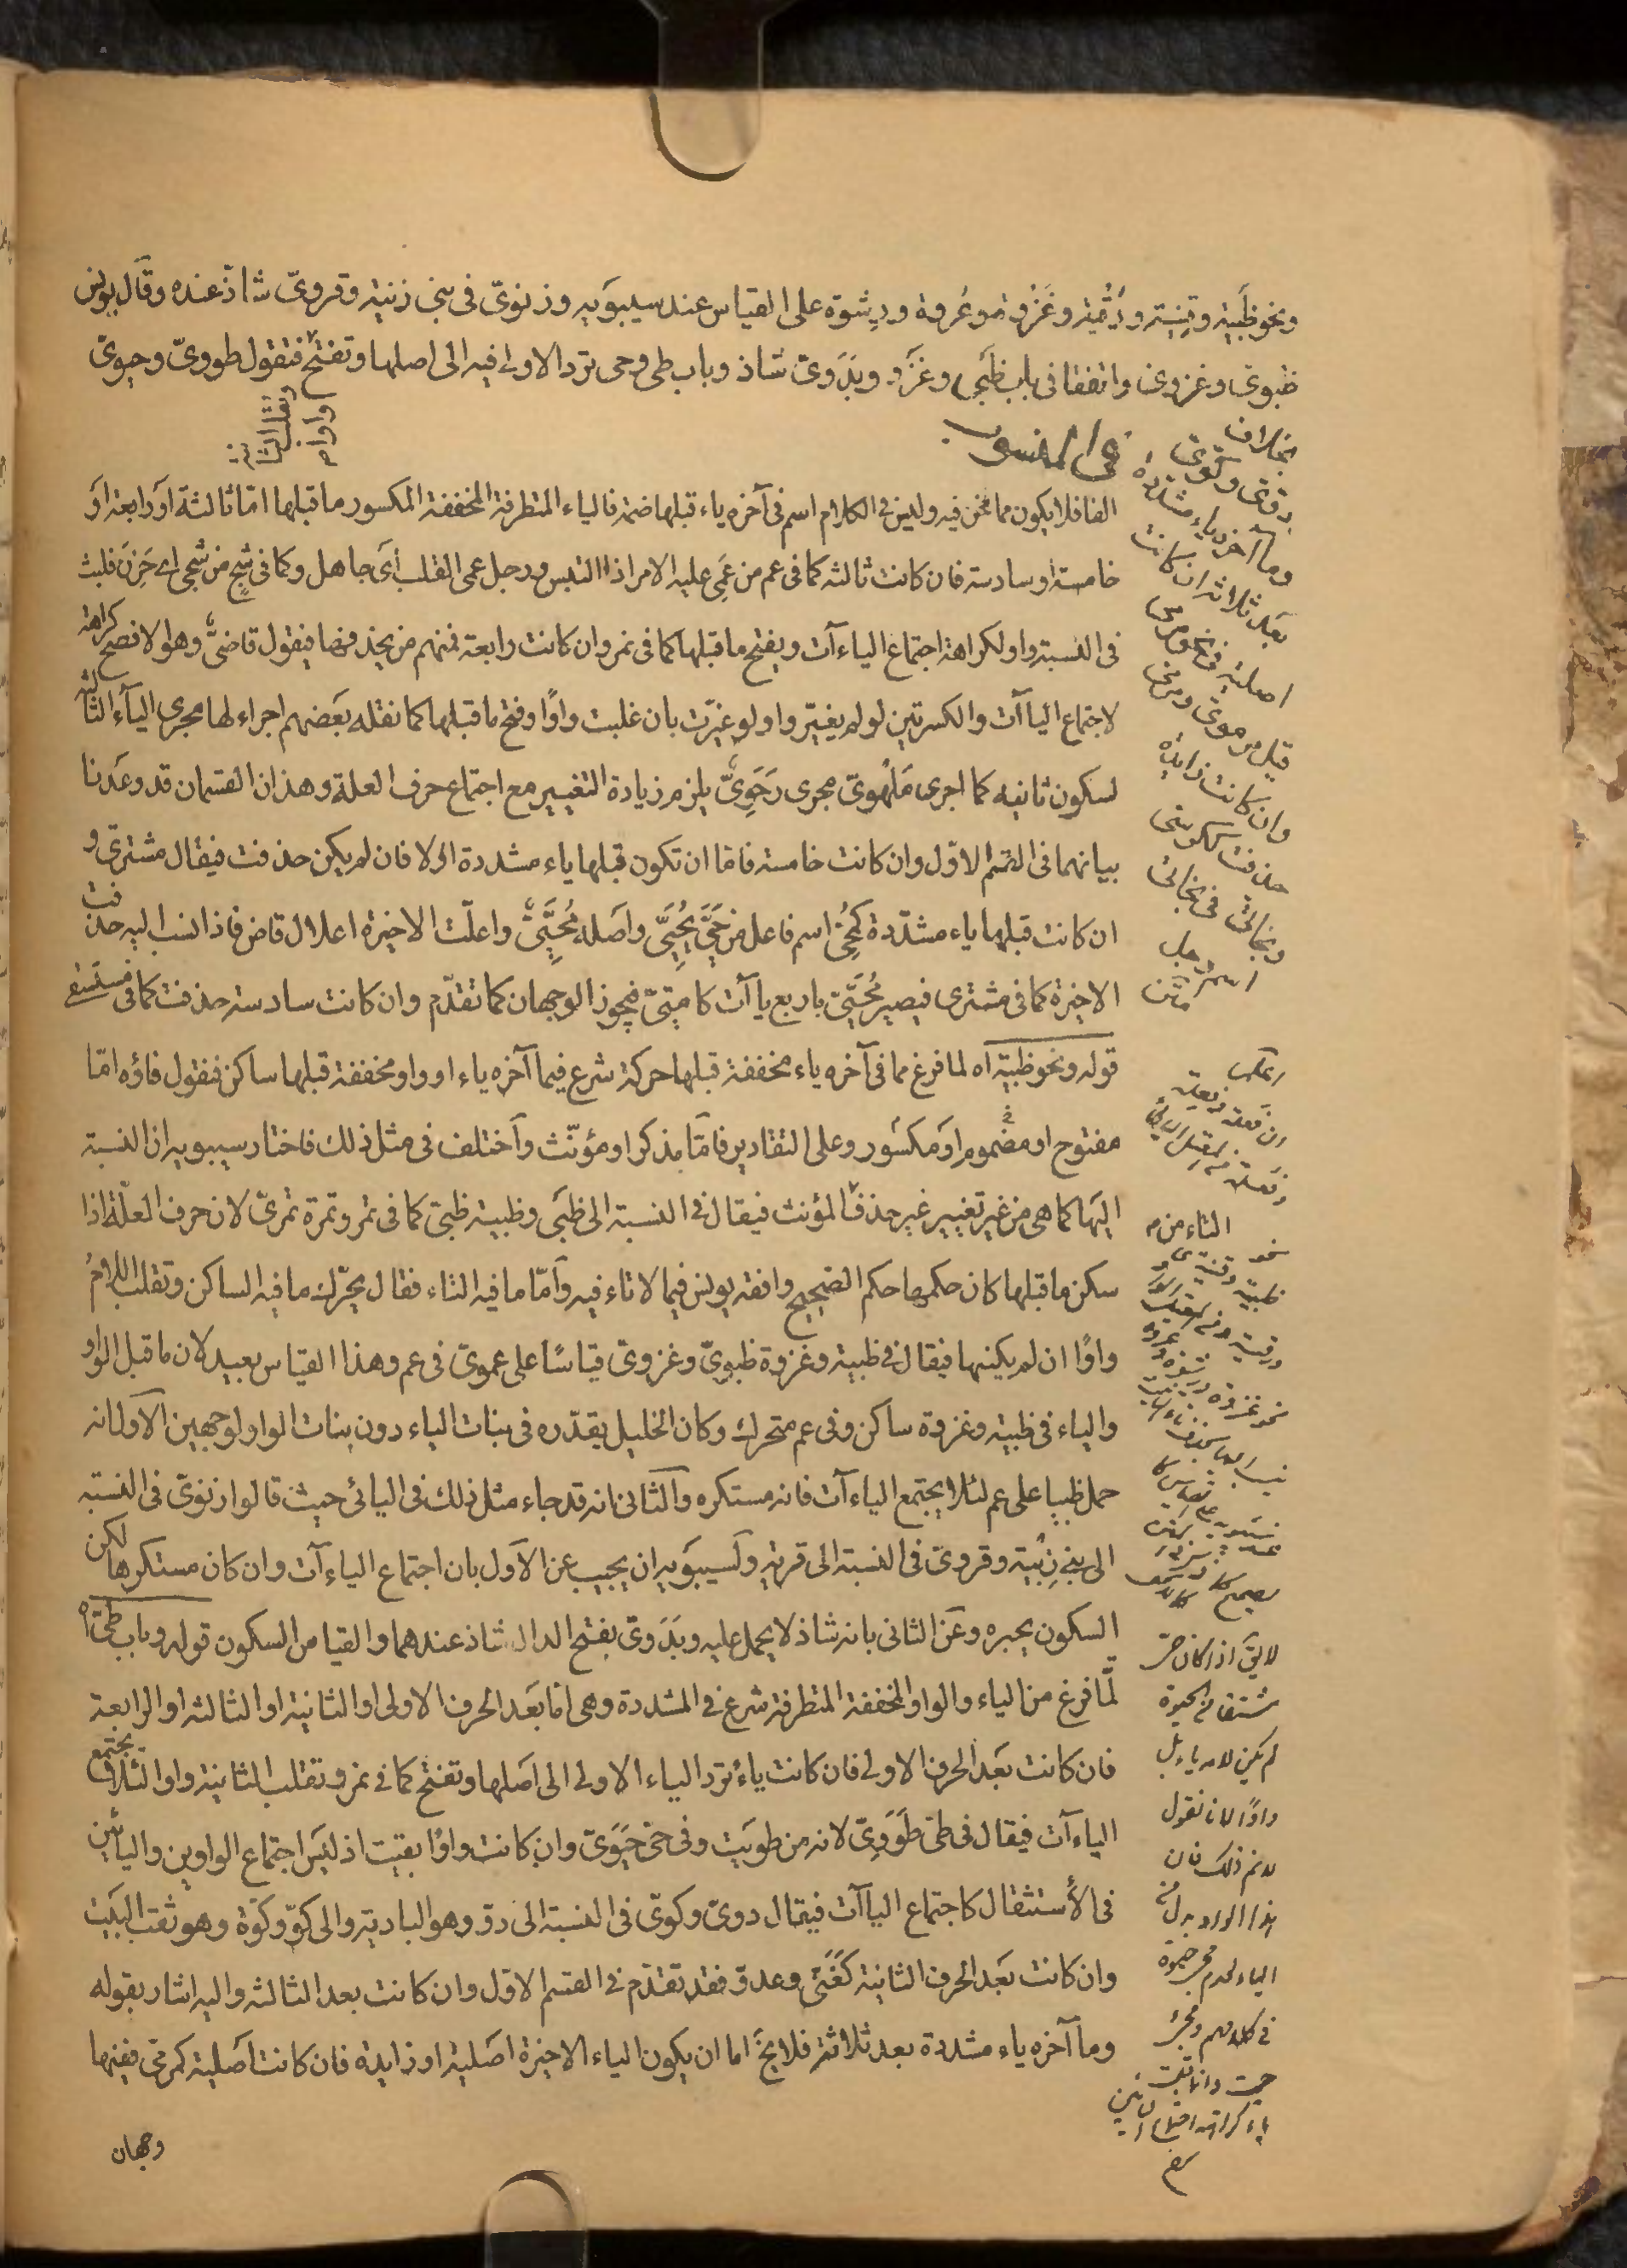 ونحو ظَبية وقِنية ورُقية وغَزوة وعُروة ورِشوة على القياس عند سيبويه وزنوىّ فى بنى زنية وقروىّ شاذّ عنده وقال يونس
ظبوىّ وغزوىّ واتفقا فى باب ظَبْى وغَزْو وبَدَوىّ شاذ وباب طى وحى ترد الاولى فيه الى اصلها وتفتح فتقول طووىّ وحيوىّ
وتقلب الثانية واوا م
بخلاف
دوّىّ وكوّىّ
وما آخره ياء مشددة
بعد ثلاثة ان كانت
اصلية فى نحو مرمى
قيل مرموىّ ومرمىّ
وان كانت زايدة
حذفت ككرسىّ
وبخاتىّ فى بخاتىّ
اسم رجل
متن
فى المنسوب
الفا فلا يكون مما نحن فيه وليس فى الكلام اسم فى آخره ياء قبلها ضمة فالياء المتطرفة المخففة المكسور ما قبلها امّا ثالثة او رابعة او
خامسة او سادسة فان كانت ثالثة كما فى عم من عَمِىَ عليه الامر اذا التبس ورجل عمى القلب اى جاهل وكما فى شجٍ من شجى اى حَزِنَ قلبت
فى النسبة واو لكراهة اجتماع الياءآت ويفتح ما قبلها كما فى نمر وان كانت رابعة فمنهم من يحذفها فيقول قاضىّ وهو الافصح كراهة
لاجتماع الياآت والكسرتين لو لم يغيّر واو لو غيّرت بان غلبت واوًا وفتح ما قبلها كما نقله بعضهم اجراء لها مجرى الياء الثالثة
لسكون ثانيه كما اجرى مَلهوىّ مجرى رَحَوِىّ يلزم زيادة التغيير مع اجتماع حرف العلة وهذان القسمان قد وعدنا
بيانهما فى القسم الاوّل وان كانت خامسة فاما ان تكون قبلها ياء مشددة اولا فان لم يكن حذفت فيقال مشترىّ و
ان كانت قبلها ياء مشدّدة كمُحىّ اسم فاعل من حَيَّى يُحَيِّى واصله مُحَيِّىٌ واعلّت الاخيرة اعلال قاض فاذا نسب اليه حذفت
الاخيرة كما فى مشترى فيصير مُحَيّىّ باربع ياآت كاميّىّ فيجوز الوجهان كما تقدّم وان كانت سادسة حذفت كما فى مستسقى
قوله ونحو ظبية آه لما فرغ مما فى آخره ياء مخففة قبلها حركة شرع فيما آخره ياء او واو مخففة قبلها ساكن فنقول فاؤه امّا
مفتوح او مضموم او مكسور وعلى التقادير فامّا مذكر او مؤنّث واختلف فى مثل ذلك فاختار سيبويه ان النسبة
اليها كما هى من غير تغيير غير حذف المؤنث فيقال فى النسبة الى ظَبْى وظبية ظبىّ كما فى تمر وتمرة تمرىّ لان حرف العلّة اذا
سكن ما قبلها كان حكمها حكم الصحيح وافقه يونس فيما لا تاء فيه وامّا ما فيه التاء فقال يحرّك ما فيه الساكن وتقلب اللامُ
واوًا ان لم يكنها فيقال فى ظبية وغزوة ظبوىّ وغزوىّ قياسًا على عموىّ فى عم وهذا القياس بعيد لان ما قبل الواو
والياء فى ظبية وغزوة ساكن وفى عم متحرك وكان الخليل يقدّره فى بنات الياء دون بنات الواو لوجهين الاول انه
حمل ظبيا على عم لئلا يجتمع الياءآت فانه مستكره والثانى انه قد جاء مثل ذلك فى اليائى حيث قالوا زنوىّ فى النسبة
الى بنى زِنْية وقروىّ فى النسبة الى قرية ولسيبويه ان يجيب عن الاول بان اجتماع الياءآت وان كان مستكرها لكن
السكون يجبره وعن الثانى بانه شاذ لا يحمل عليه وبَدَوىّ بفتح الدال شاذ عندهما والقياس السكون قوله وباب طىّ آه
لمّا فرغ من الياء والواو المخففة المتطرفة شرع فى المشددة وهى اما بعد الحرف الاولى او الثانية او الثالثة او الرابعة
فان كانت بعد الحرف الاولى فان كانت ياءً ترد الياء الاولى الى اصلها وتفتح كما فى نمر وتقلب الثانية واوا لئلا يجتمع
الياءآت فيقال فى طىّ طَوَوِىّ لانه من طويت وفى حىّ حيَوىّ وان كانت واوًا بقيت اذ ليس اجتماع الواوين واليائين
فى الاستثقال كاجتماع الياآت فيقال دوىّ وكوىّ فى النسبة الى دوّ وهو البادية والى كوّ وكوّة وهو ثقب البيت
وان كانت بعد الحرف الثانية كغنىّ وعدوّ فقد تقدّم فى القسم الاوّل وان كانت بعد الثالثة واليه اشار بقوله
وما آخره ياء مشددة بعد ثلاثة فلا يخ اما ان يكون الياء الاخيرة اصلية او زايدة فان كانت اصلية كمرمىّ ففيها
التاء من م
لا يقال اذا كان حىّ
مشتقا من الحيوة
لم يكن لامه ياء بل
واوًا لانا نقول
لا نم ذلك فان
هذا الواو بدل من
الياء لعدم حيوة
فى كلامهم
وجهان